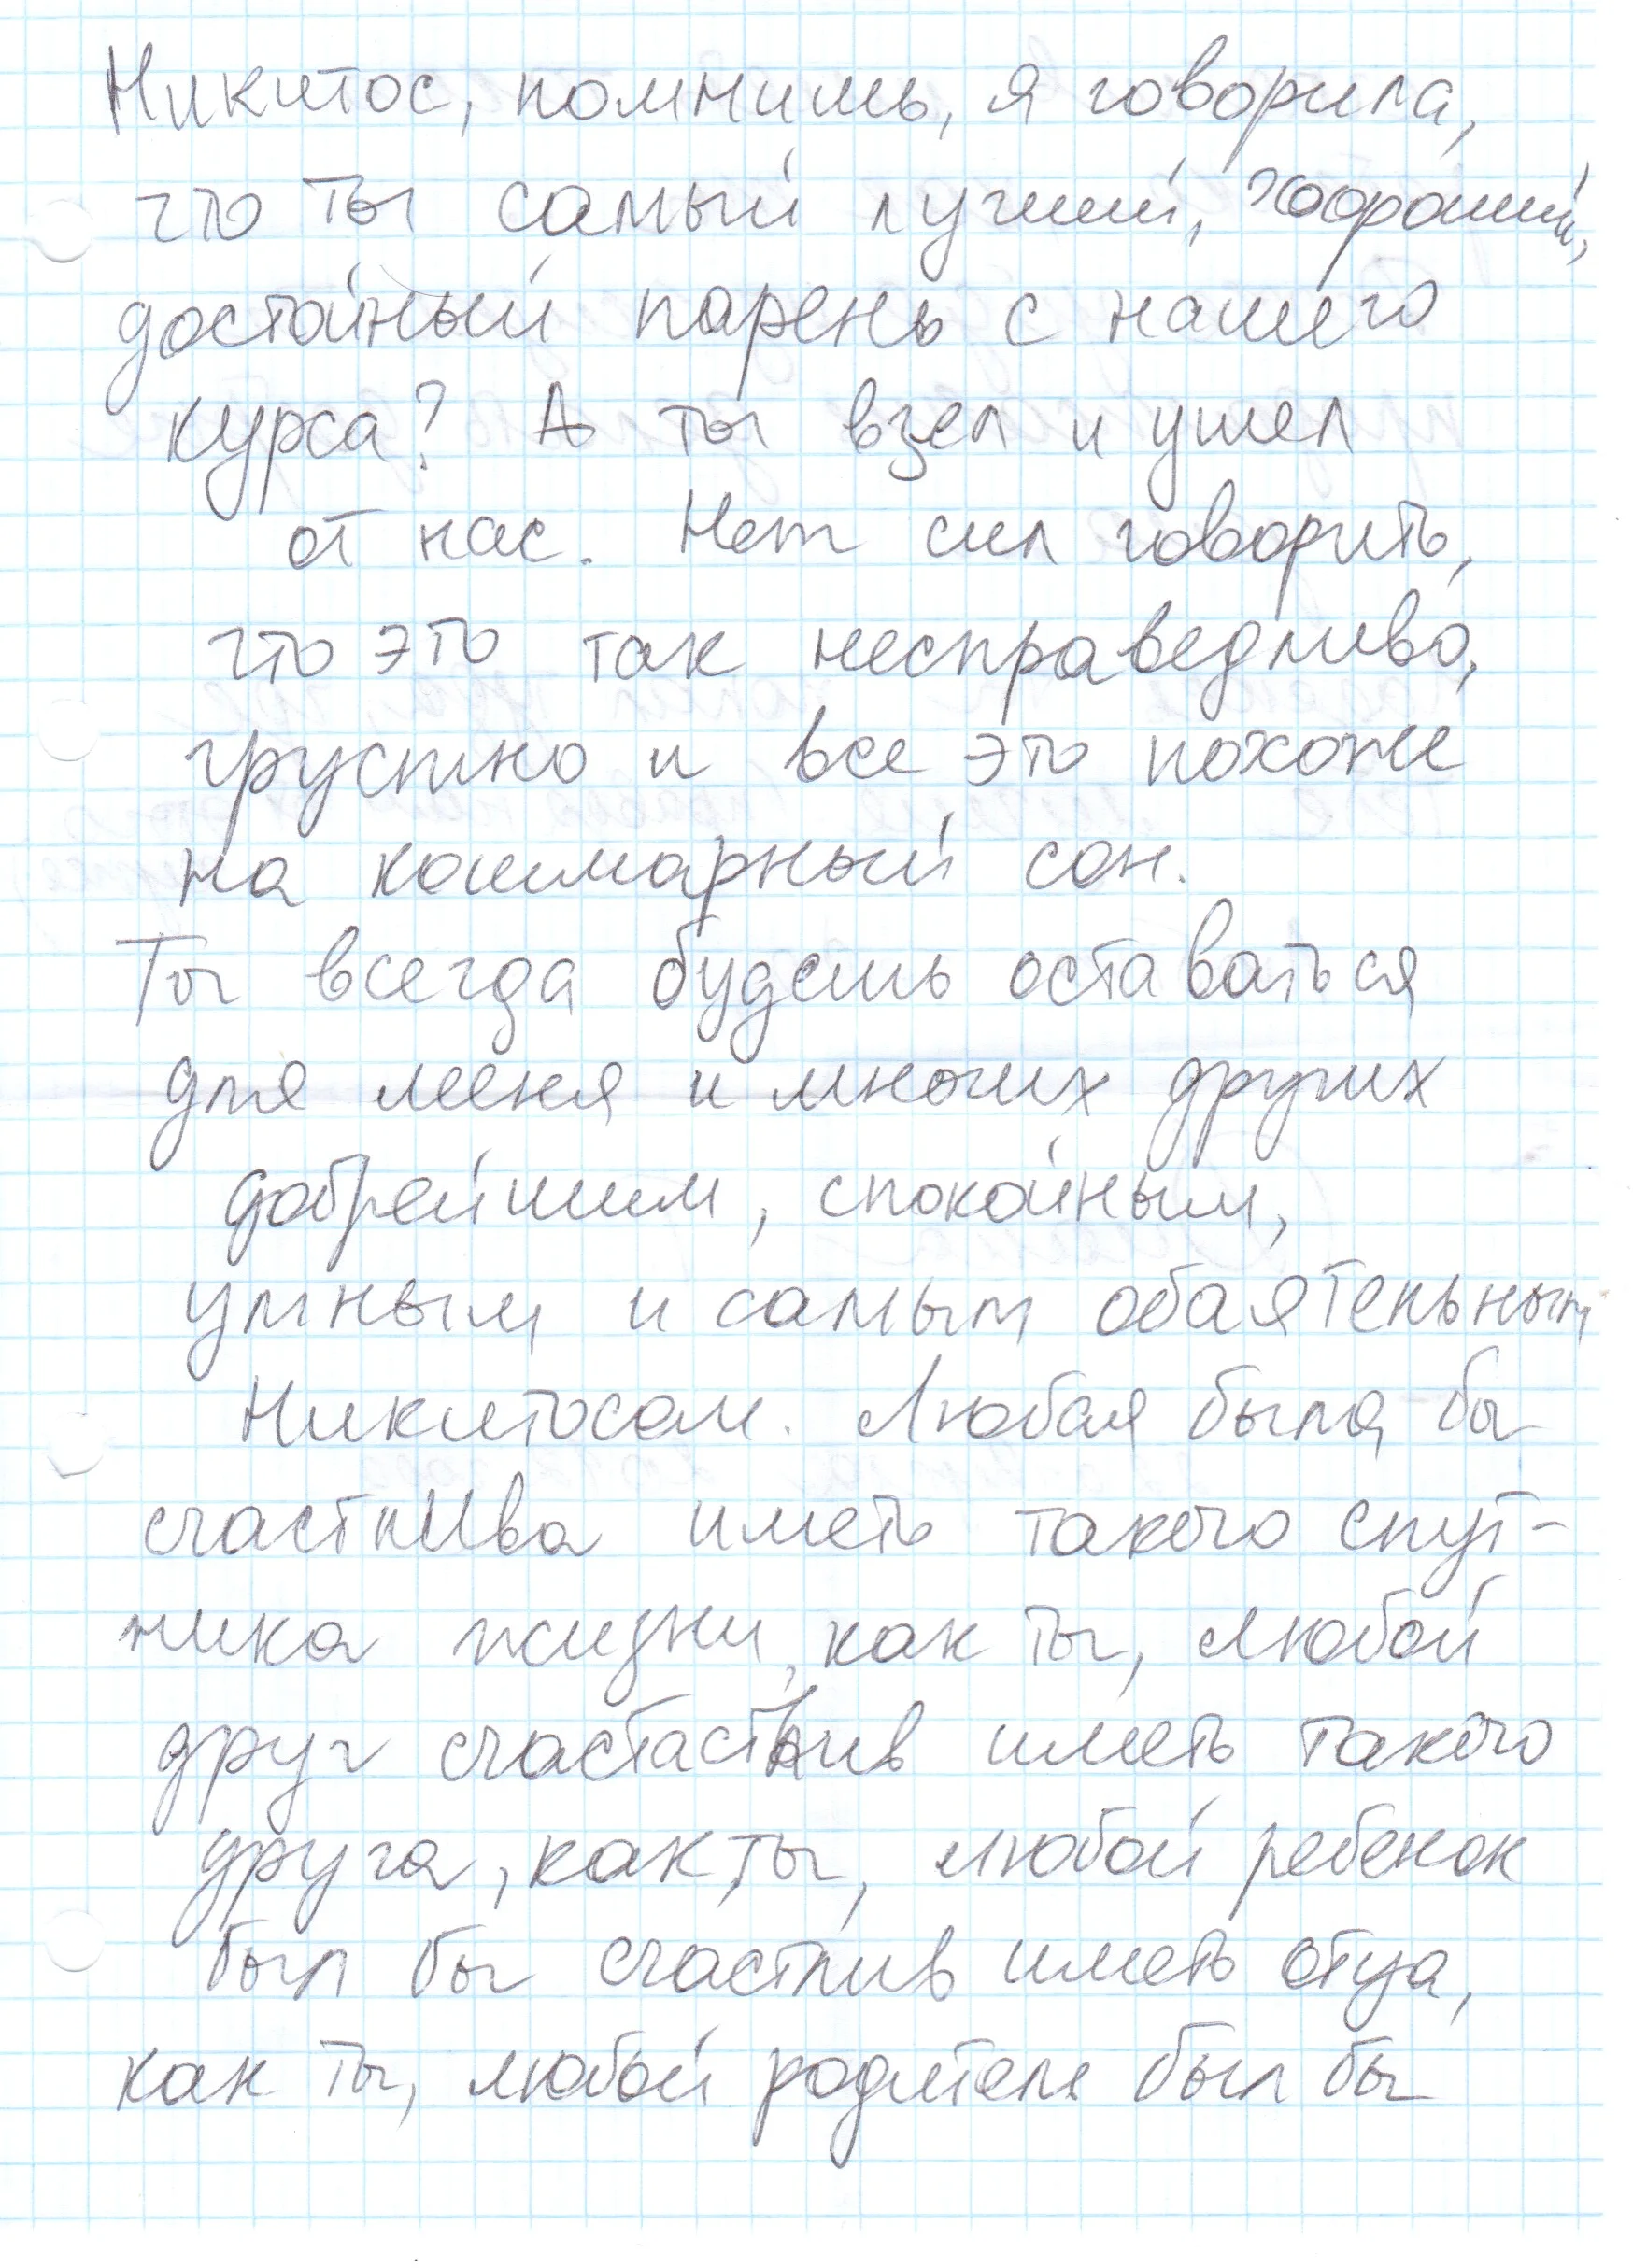 Никитос, помнишь, я говорила,
что ты самый лучший, хороший,
достойный парень с нашего
курса? А ты взял и ушел
от нас. Нет сил говорить,
что это так несправедливо,
грустно и все это похоже
на кошмарный сон.
Ты всегда будешь оставаться
для меня и многих других
добрейшим, спокойным,
умным и самым обаятельным
Никитосом. Любая была бы
счастлива иметь такого спут-
ника жизни, как ты, любой
друг счастастлив иметь такого
друга, как ты, любой ребенок
был бы счастлив иметь отца,
как ты, любой родитель был бы